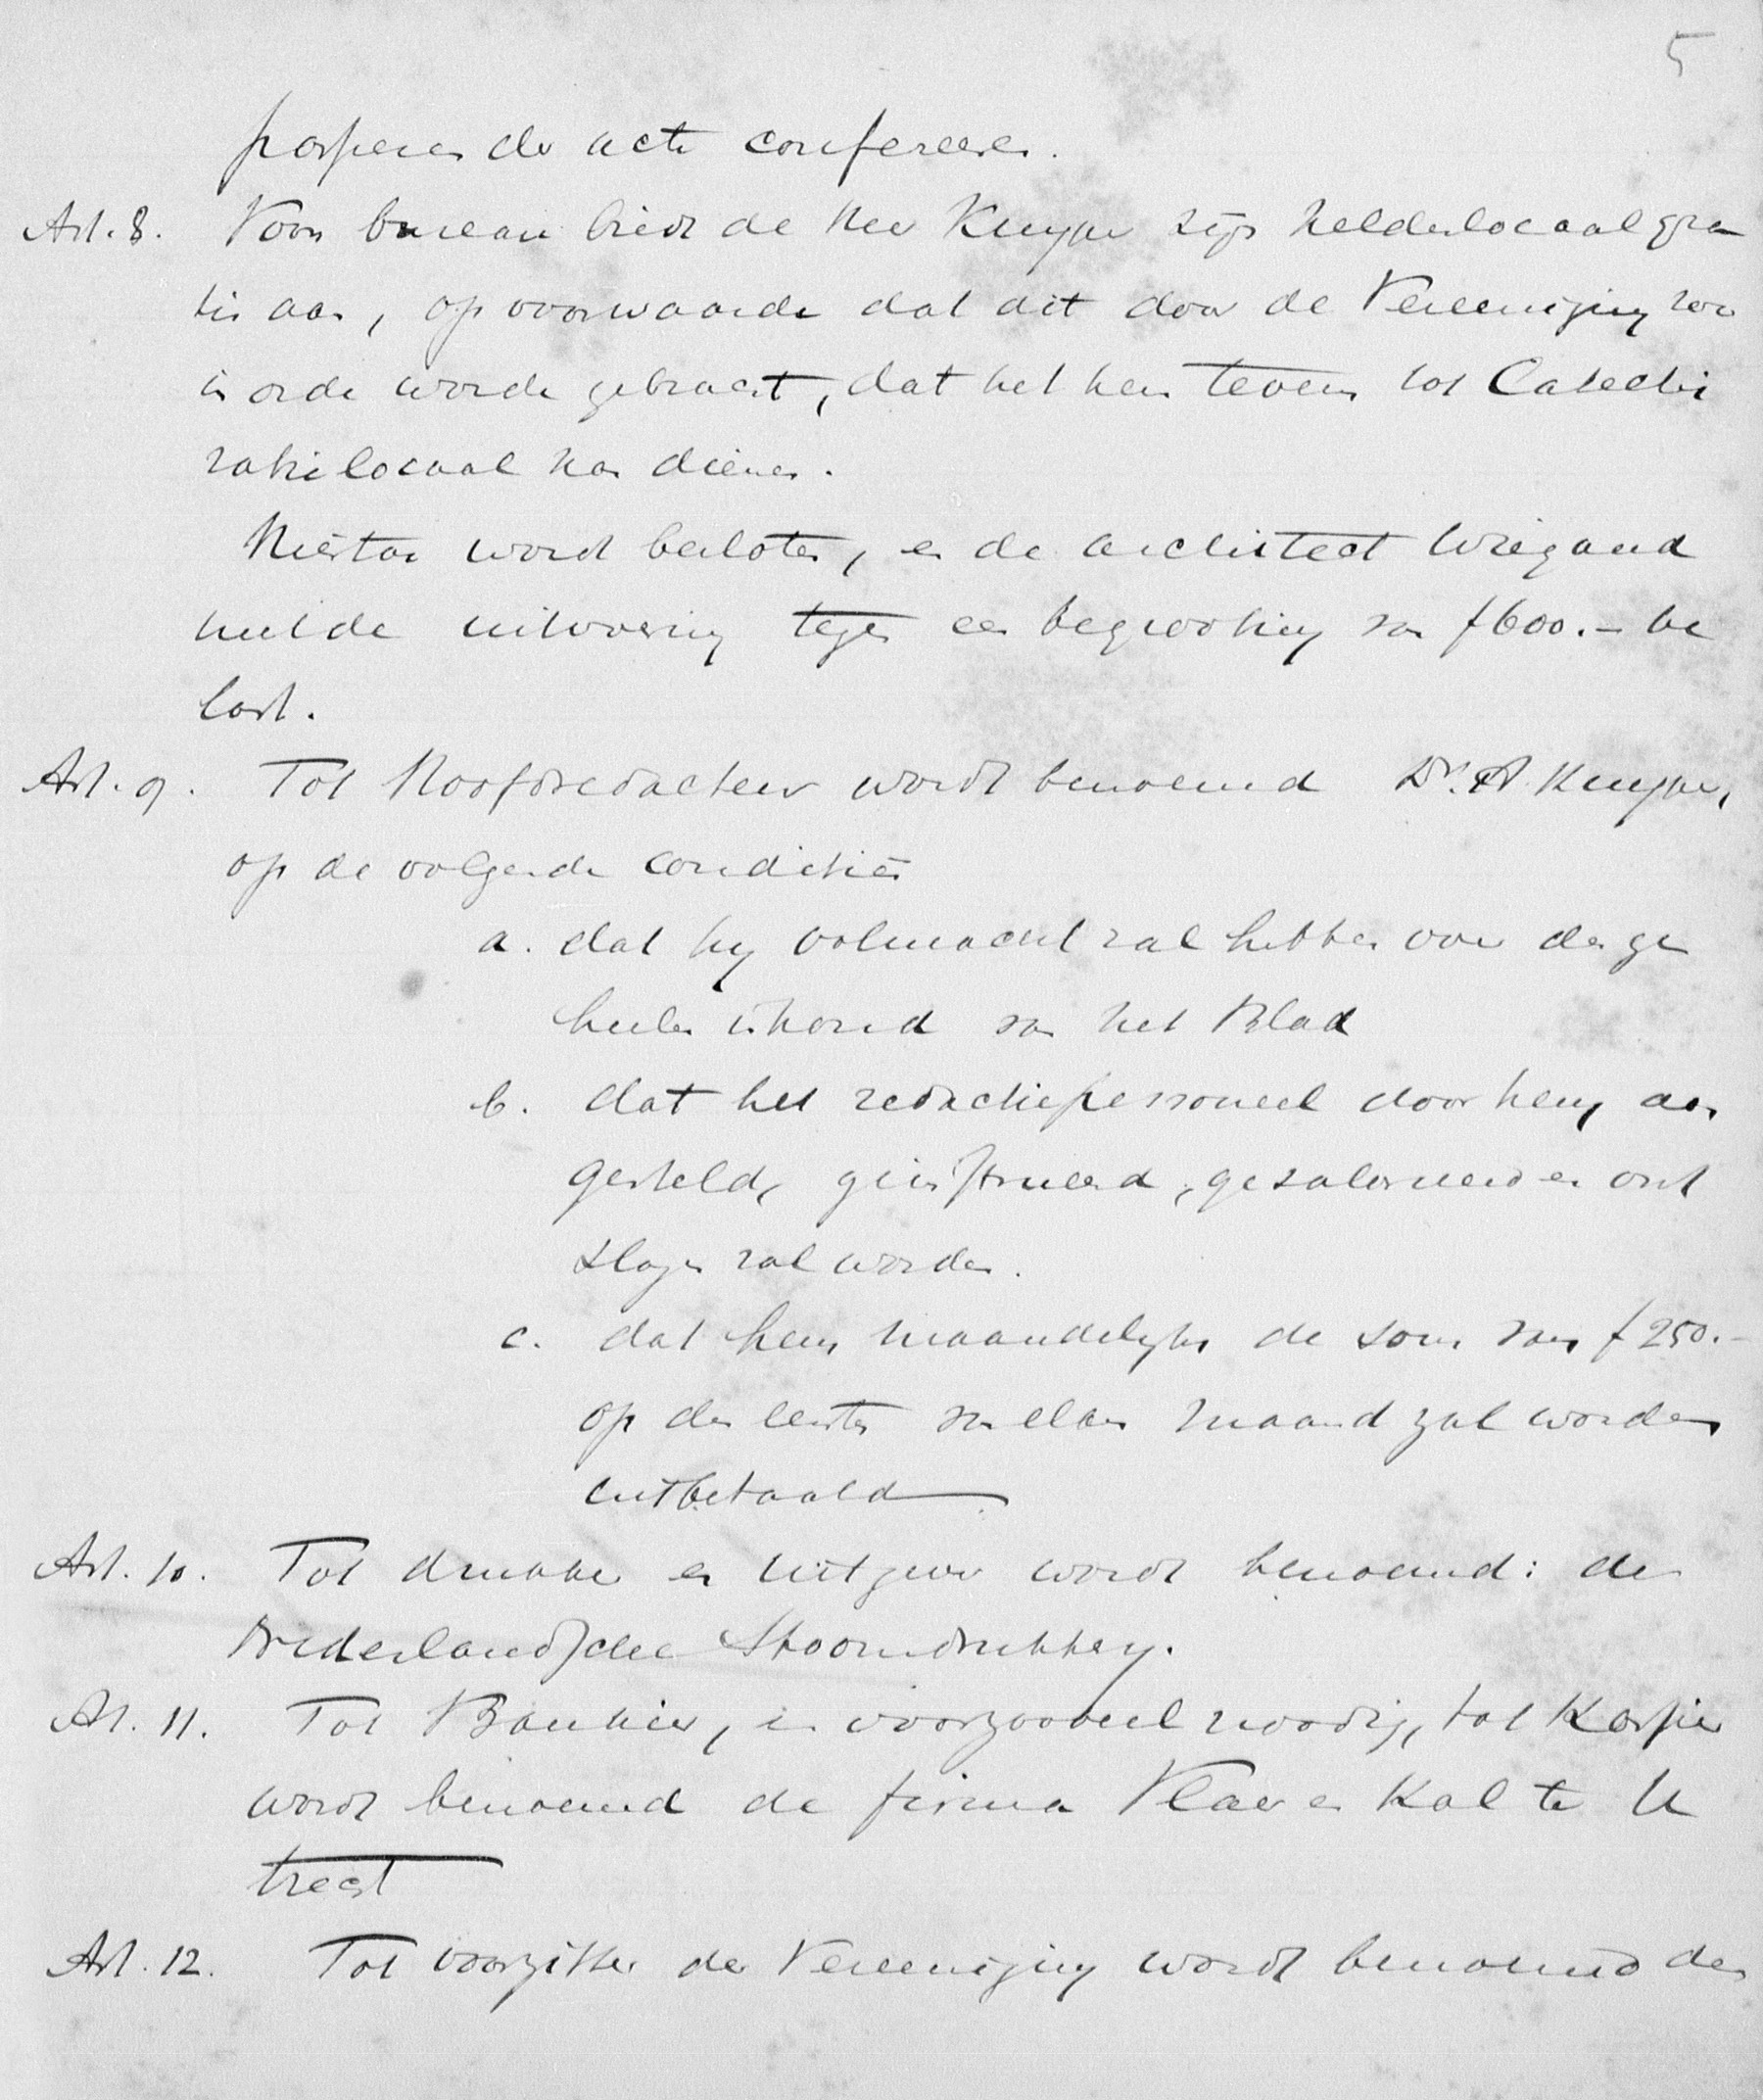 5
passeren de acte confereeren.
Art. 8. Voor bureau biedt de Heer Kuyper zijn kelderlocaal gra
tis aan, op voorwaarde dat dit door de Vereeniging zoo
in orde worde gebracht, dat het hem tevens tot Catechi
satielocaal kan dienen.
Hiertoe wordt besloten, en de architect Wiegand
met de uitvoering tegen een begrooting van f 600.- be
last.
Art. 9. Tot Hoofdredacteur wordt benoemd Dr. A. Kuyper,
op de volgende conditiën
a. dat hij volmacht zal hebben over den ge
heelen inhoud van het Blad
b. dat het redactiepersoneel door hem aan
gesteld, geïnstrueerd, gesalarieerd en ont
slagen zal worden.
c. dat hem maandelijks de som van f 250.-
op den eersten van elken maand zal worden
uitbetaald
Art. 10. Tot drukker en uitgever wordt benoemd: de
Nederlandsche Stoomdrukkerij.
Art. 11. Tot Bankier, en voorzooveel noodig, tot Kassier
wordt benoemd de firma Vlaer en Kol te U
trecht
Art. 12. Tot voorzitter der Vereeniging wordt benoemd den